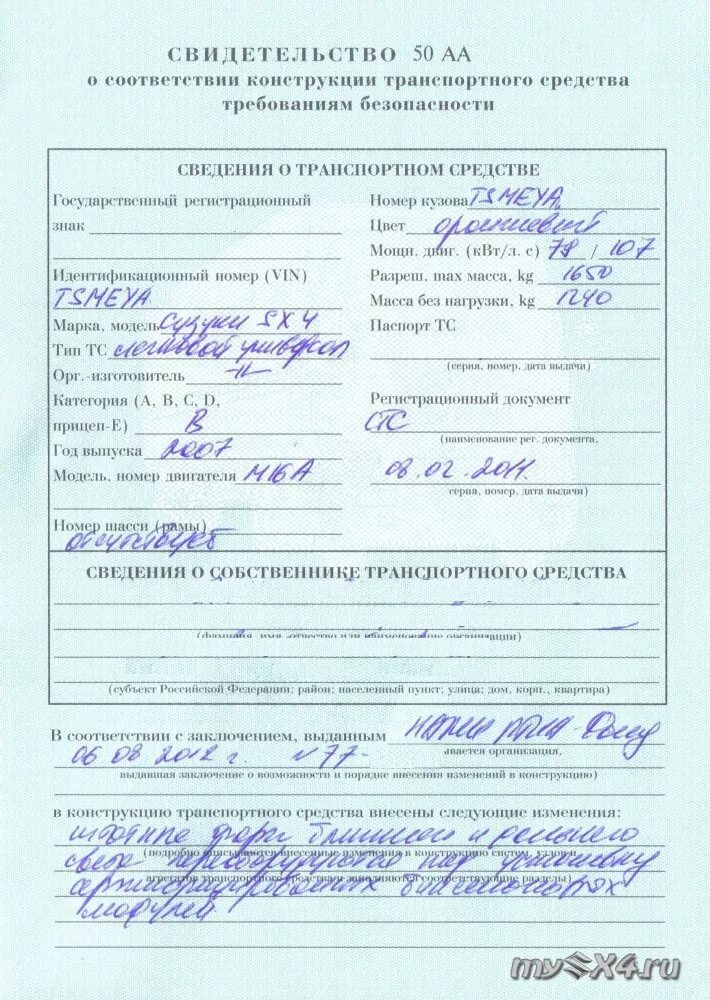 СВИДЕТЕЛЬСТВО 50 АА
о соответствии конструкции транспортного средства
требованиям безопасности
СВЕДЕНИЯ О ТРАНСПОРТНОМ СРЕДСТВЕ
Государственный регистрационный
знак
Идентификационный номер (VIN)
TSMEYA
Марка, модель Сузуки SX4
Тип ТС легковой универсал
Орг.-изготовитель
Категория (A, B, C, D,
прицеп-E) B
Год выпуска 2007
Модель, номер двигателя M16A
Номер шасси (рамы)
отсутствует
Номер кузова TSMEYA
Цвет оранжевый
Мощн. двиг. (кВт/л. с) 79 / 107
Разреш. max масса, kg 1650
Масса без нагрузки, kg 1240
Паспорт ТС
(серия, номер, дата выдачи)
Регистрационный документ
СТС
(наименование рег. документа,
08.02.2011.
серия, номер, дата выдачи)
СВЕДЕНИЯ О СОБСТВЕННИКЕ ТРАНСПОРТНОГО СРЕДСТВА
(фамилия, имя, отчество или наименование организации)
(субъект Российской Федерации; район; населенный пункт; улица; дом, корп., квартира)
В соответствии с заключением, выданным
06 08 2012 г. N 77-
ывается организация,
выдавшая заключение о возможности и порядке внесения изменений в конструкцию)
в конструкцию транспортного средства внесены следующие изменения:
штатные фары ближнего и дальнего
света
(подробно описываются внесенные изменения в конструкцию систем, узлов и
агрегатов транспортного средства и заполняются соответствующие разделы)
модулей
mySX4.ru